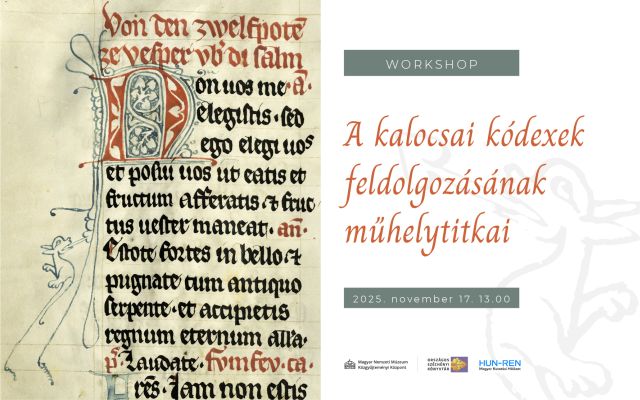 Von den zwelfpotē
ze vesper vb' di salm
Non uos me · A ·
elegistis · sed
ego elegi uos
et posui uos ut eatis et
fructum afferatis · & fruc
tus uester maneat · an̄ ·
Estote fortes in bello · &
pugnate cum antiquo
serpente · et accipietis
regnum eternum alla ·
p̄ · Laudate · Symfey · ca ·
res · Iam non estis
WORKSHOP
A kalocsai kódexek
feldolgozásának
műhelytitkai
2025. november 17. 13.00
Magyar Nemzeti Múzeum
Közgyűjteményi Központ
ORSZÁGOS
SZÉCHÉNYI
KÖNYVTÁR
HUN-REN
Magyar Kutatási Hálózat